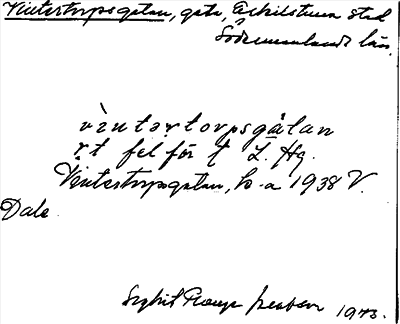 Vintertorpsgatan, gata, Eskilstuna stad
Södermanlands län.
vìntərtorpsgàtan
rt fel för t L. Hg.
Vintertorpsgatan, b-a 1938 V.
Dale
Sigbrit Plænge Jacobson 1973.